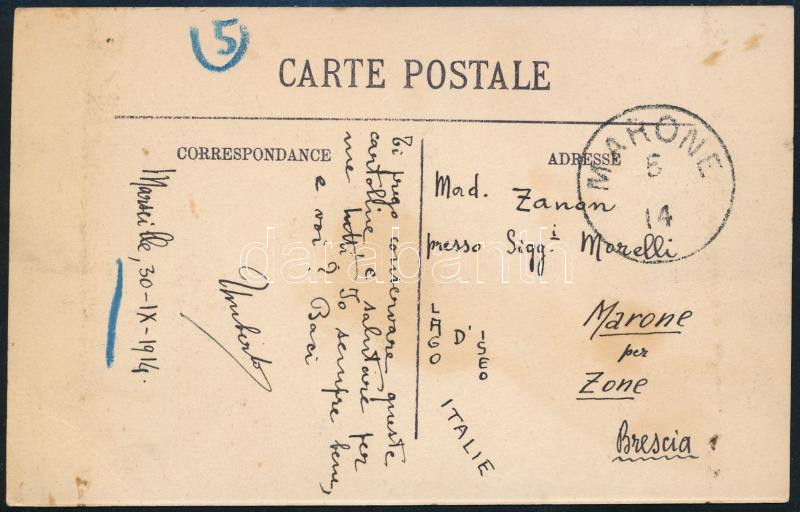 5
CARTE POSTALE
CORRESPONDANCE
ADRESSE
MARONE
14
Marseille, 30-IX-1914.
Ti prego conservare queste
cartoline e salutare per
me tutti. Io sempre bene,
e voi? Baci
Umberto
Mad. Zanon
presso Sigg.i Morelli
Marone
per
Zone
Brescia
LAGO
D'
ISEO
ITALIE
darabanth